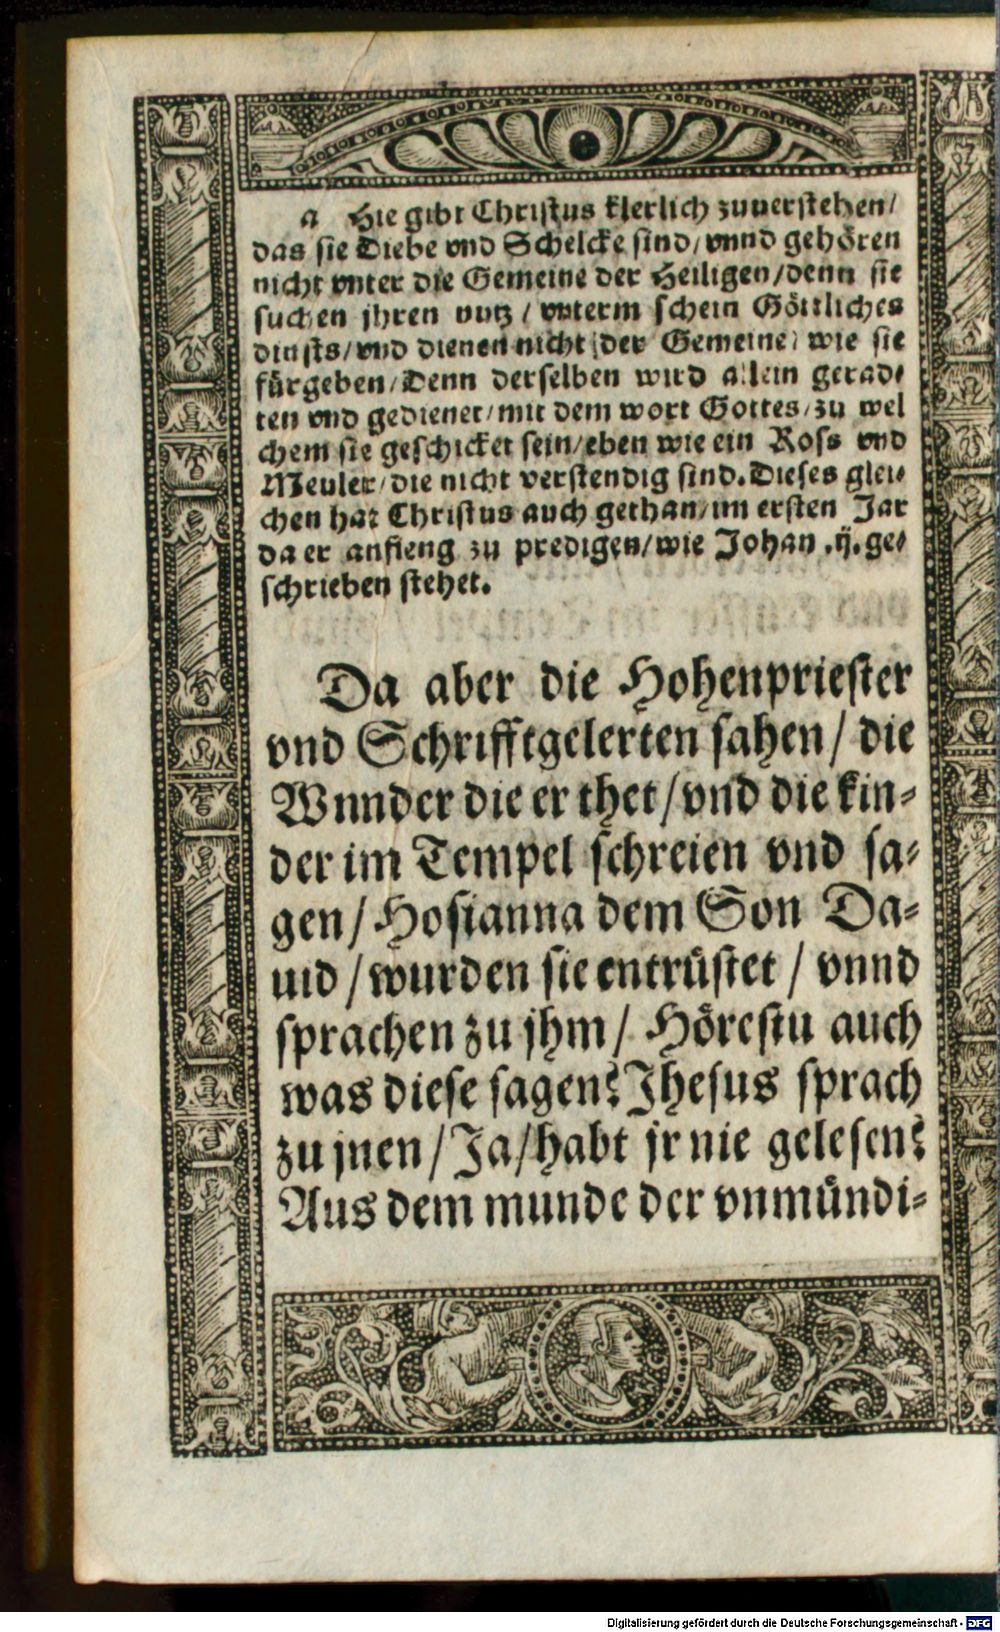 a Hie gibt Christus klerlich zuuerstehen/
das sie Diebe vnd Schelcke sind/vnnd gehören
nicht vnter die Gemeine der Heiligen/denn sie
suchen jhren nutz/vnterm schein Göttliches
dinsts/vnd dienen nicht der Gemeine/wie sie
fürgeben/Denn derselben wird allein gerad⸗
ten vnd gedienet/mit dem wort Gottes/zu wel
chem sie geschicket sein/eben wie ein Ross vnd
Meuler/die nicht verstendig sind. Dieses glei⸗
chen hat Christus auch gethan/im ersten Jar
da er anfieng zu predigen/wie Johan .ij. ge⸗
schrieben stehet.
Da aber die Hohenpriester
vnd Schrifftgelerten sahen/die
Wnnder die er thet/vnd die kin⸗
der im Tempel schreien vnd sa⸗
gen/Hosianna dem Son Da⸗
uid/wurden sie entrüstet/vnnd
sprachen zu jhm/Hörestu auch
was diese sagen? Jhesus sprach
zu jnen/Ja/habt jr nie gelesen?
Aus dem munde der vnmündi⸗
Digitalisierung gefördert durch die Deutsche Forschungsgemeinschaft - DFG